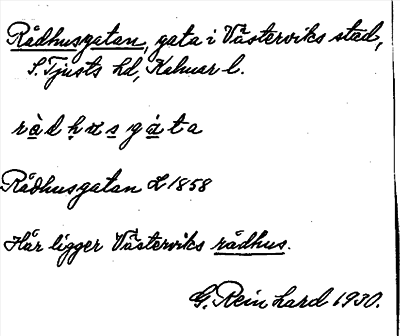 Rådhusgatan, gata i Västerviks stad,
S. Tjusts hd, Kalmar l.
rådhusgata
Rådhusgatan L 1858
Här ligger Västerviks rådhus.
G. Reinhard 1930.